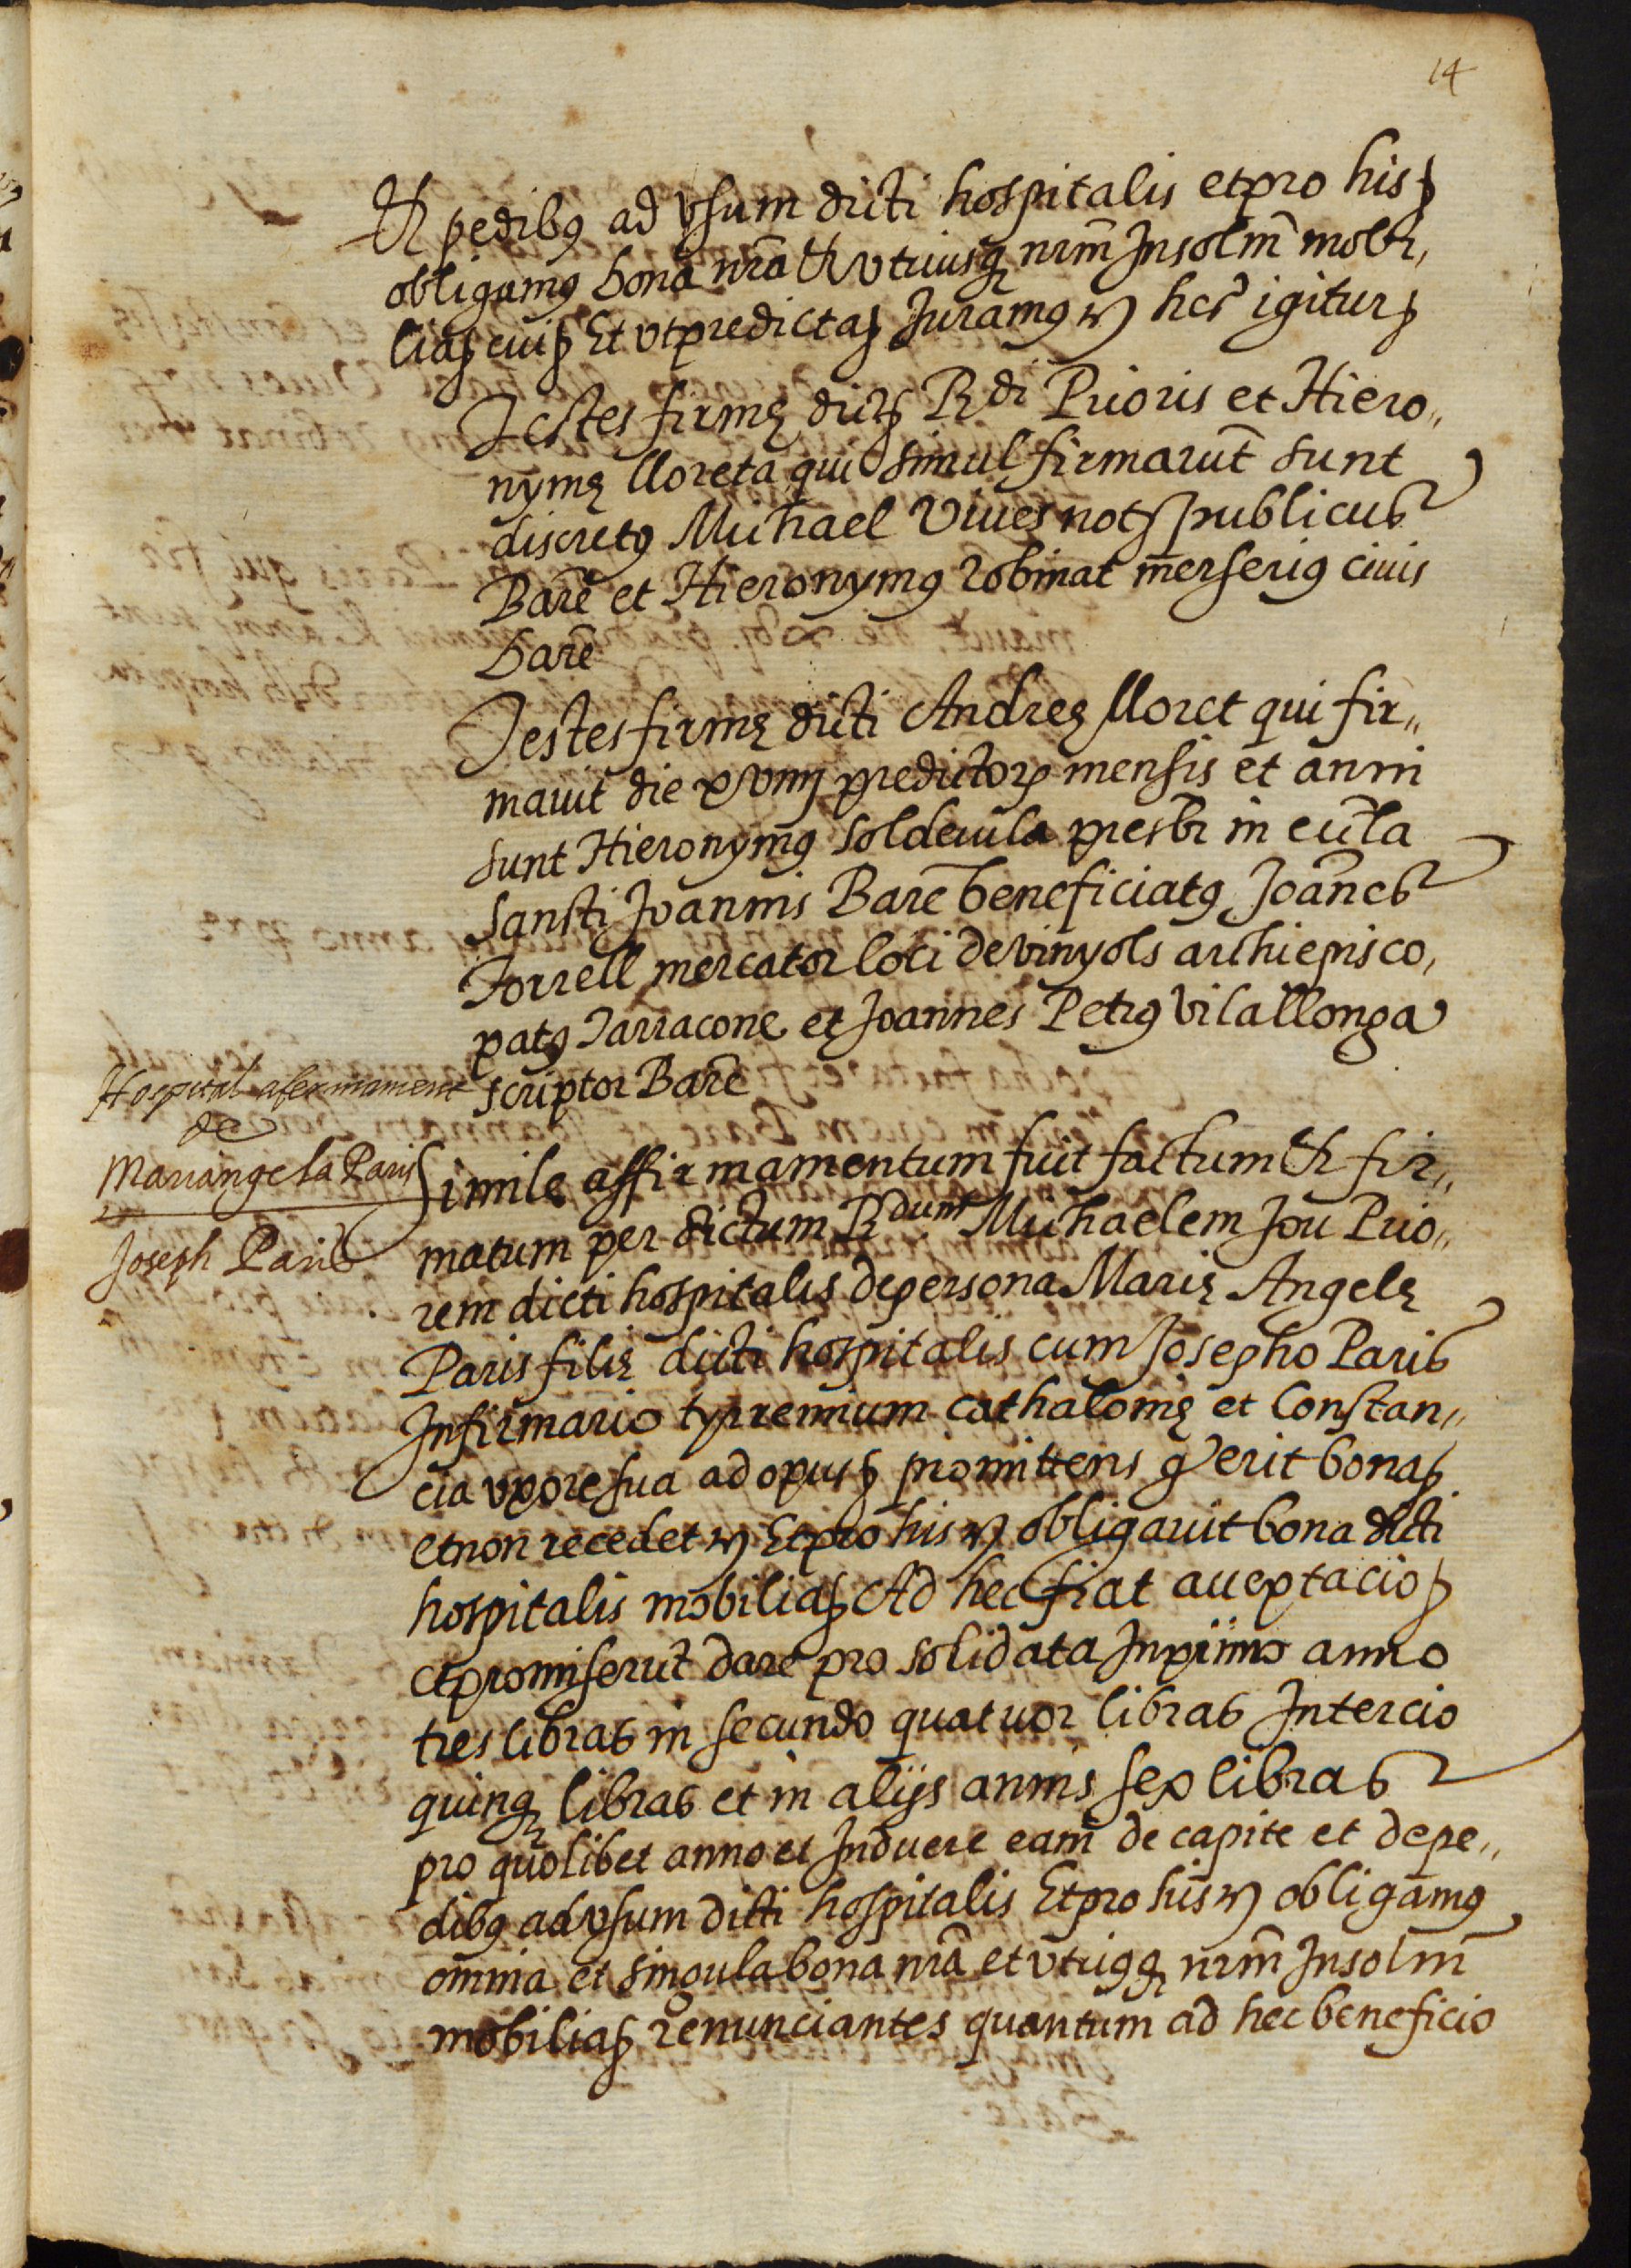 14
Et pedibꝰ ad vsum dicti hospitalis et pro hisꝭ
obligamꝰ bona nr̃a Et vtriusqꝫ nr̃m Insolm̃ mobi,
liaꝭ eiusꝭ Et vt predictaꝭ Juramꝰ ꝛc hec igiturꝭ
Testes firmę dictꝭ R.di Prioris et Hiero,,
nymę lloreta qui simul firmarũt sunt
discretꝰ Michael Viues notꝭ publicus
Barẽ et Hieronymꝰ robinat m̃erseriꝰ ciuis
barẽ
Testes firmę dicti Andreę lloret qui fir,,
mauit die xviiij predictoꝝ mensis et anni
sunt Hieronym̃ꝰ soldeuila presbr̃ in ecc̃la
Sancti Joannis Barẽ beneficiatꝰ Joãnes
Torrell mercator loci de vinyols archiepisco,
patꝰ Tarracone et Joannes Petrꝰ vilallonga
scriptor Barẽ
Hospital afermament
de
Mariangela Paris
Joseph Paris
Similę affirmamentum fuit factum Et fir,,
matum per dictum R.dum Michaelem Jou Prio,,
rem dicti hospitalis de persona Marię Angelę
Paris filię dicti hospitalis cum Josepho Paris
Infirmario typrennium cathalonię et Constan,,
cia vxore sua ad opusꝭ promittens qͥ erit bonaꝭ
et non recedet ꝛc Et pro his ꝛc obligauit bona dicti
hospitalis mobiliaꝭ Ad hec fiat acceptacioꝭ
et promiserũt dare pro solidata In primo anno
tres libras in secundo quatuor libras In tercio
quinqꝫ libras et in alijs annis sex libras
pro quolibet anno et Induere eam̃ de capite et de pe,,
dibꝰ ad vsum dicti hospitalis Et pro his ꝛc obligamꝰ
omnia et singula bona nr̃a et vtriꝰqꝫ nr̃m Insolm̃
mobiliaꝭ renunciantes quantum ad hec beneficio